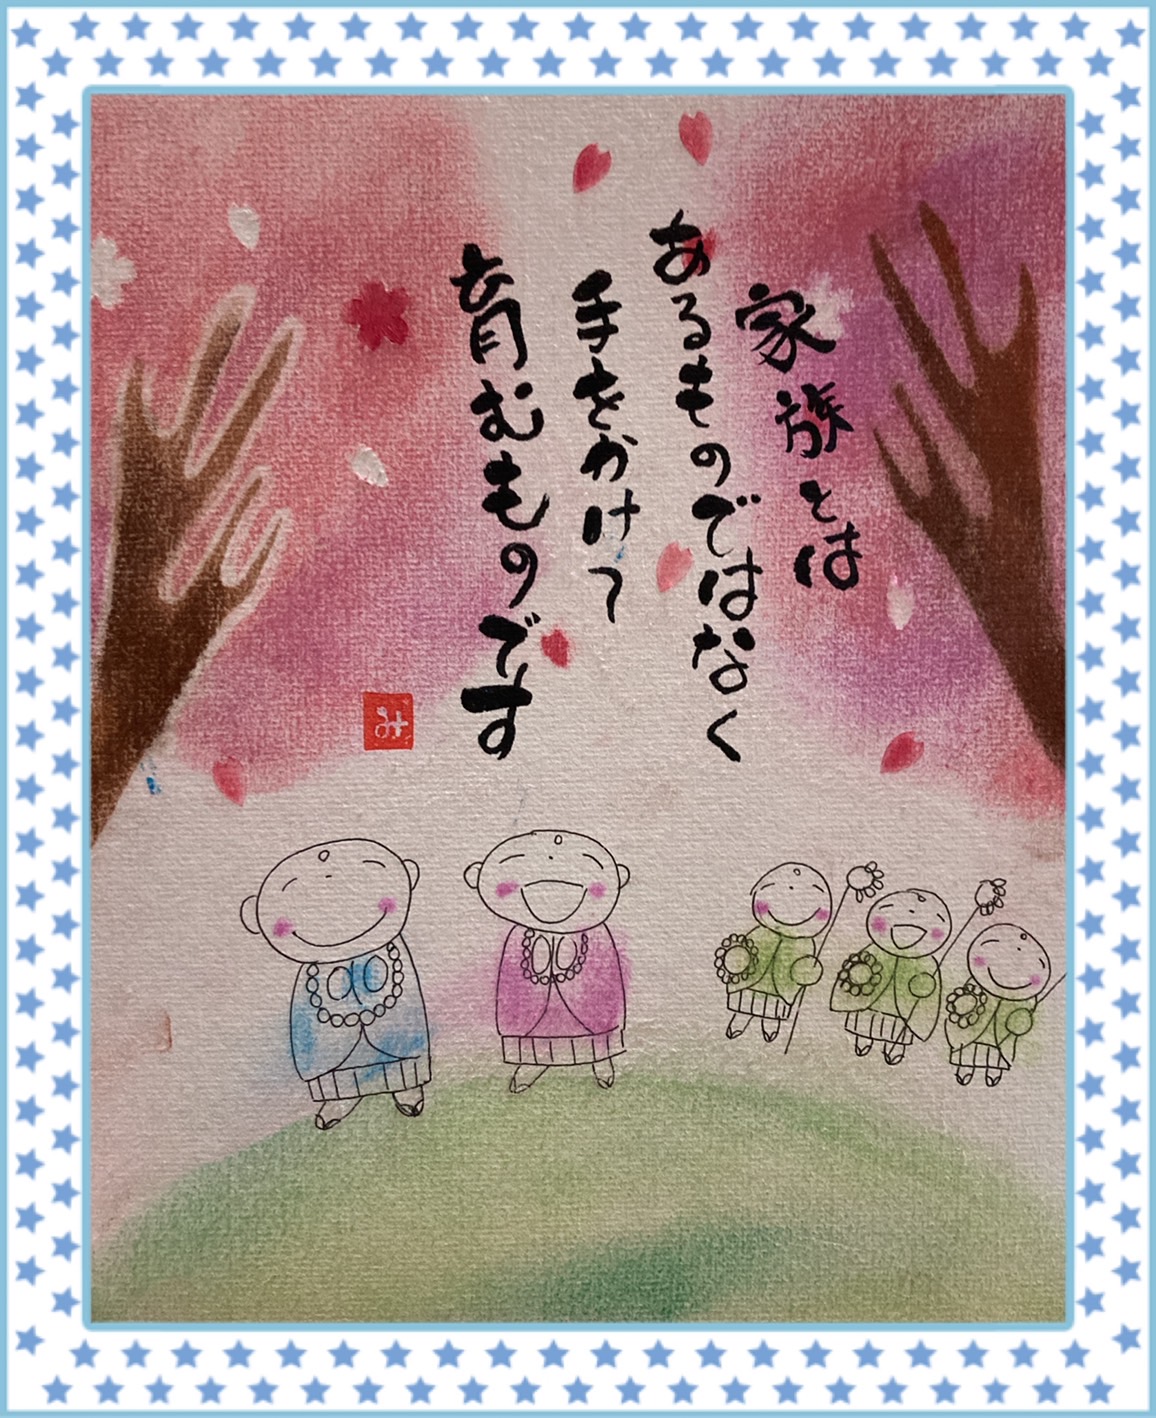 家族とは
あるものではなく
手をかけて
育むものです
み